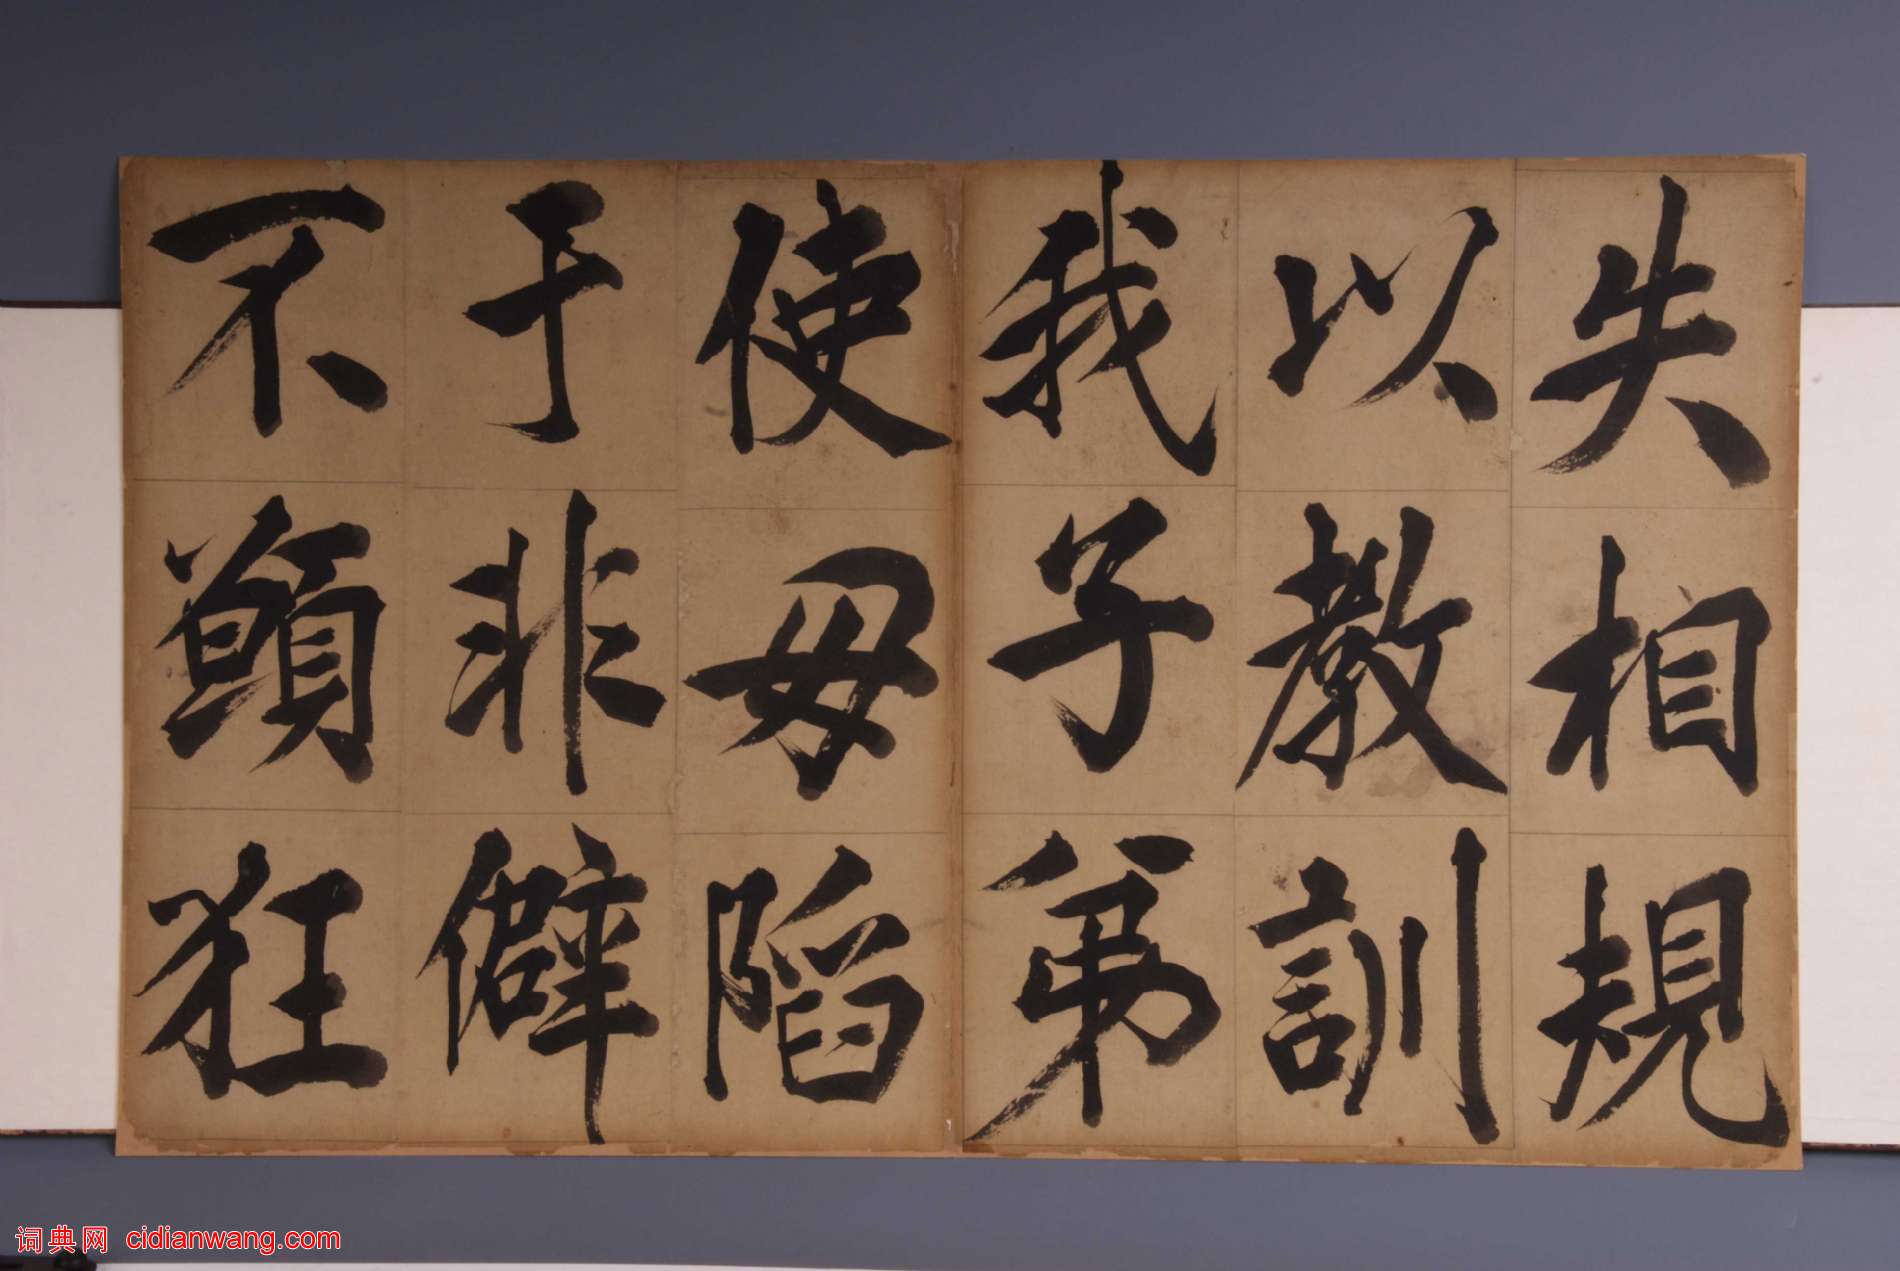 失相規
以教訓
我子弟
使毋陷
于非僻
不顧狂
词典网 cidianwang.com